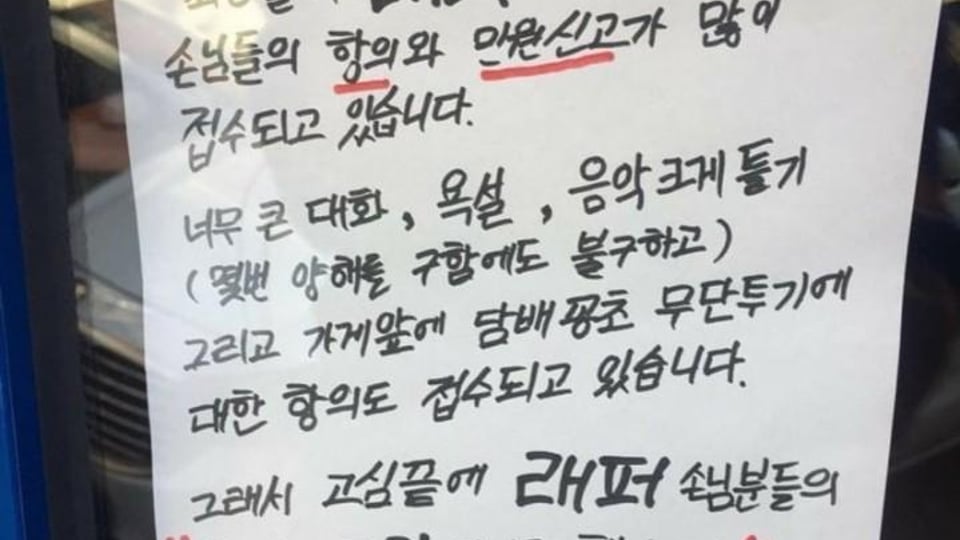 손님들의 항의와 민원신고가 많이
접수되고 있습니다.
너무 큰 대화, 욕설, 음악크게 틀기
(몇번 양해를 구함에도 불구하고)
그리고 가게앞에 담배꽁초 무단투기에
대한 항의도 접수되고 있습니다.
그래서 고심끝에 래퍼 손님분들의